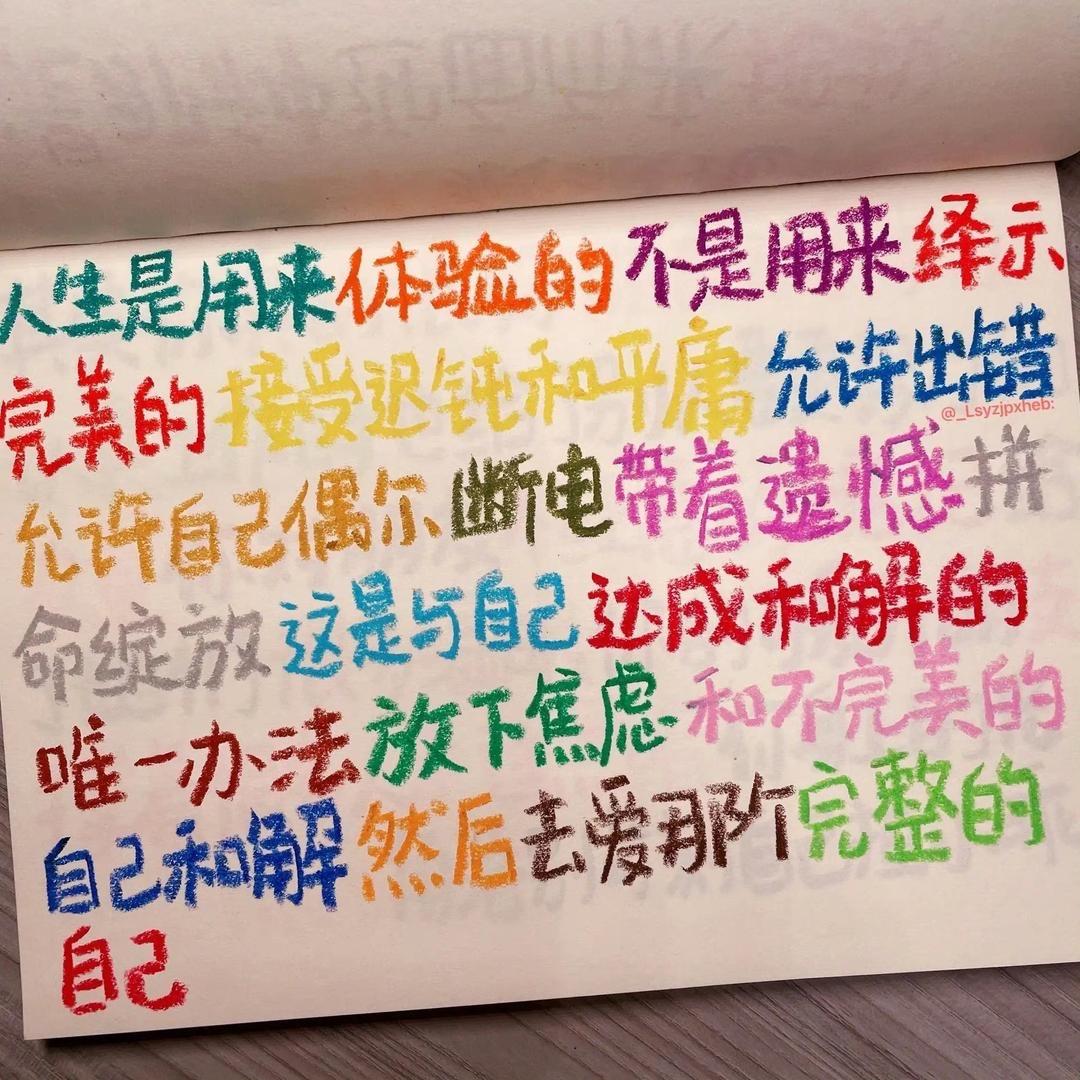 人生是用来体验的 不是用来绎示
完美的 接受迟钝和平庸 允许出错
@_Lsyzjpxheb:
允许自己偶尔断电 带着遗憾 拼
命绽放 这是与自己达成和解的
唯一办法 放下焦虑 和不完美的
自己和解 然后去爱那个完整的
自己